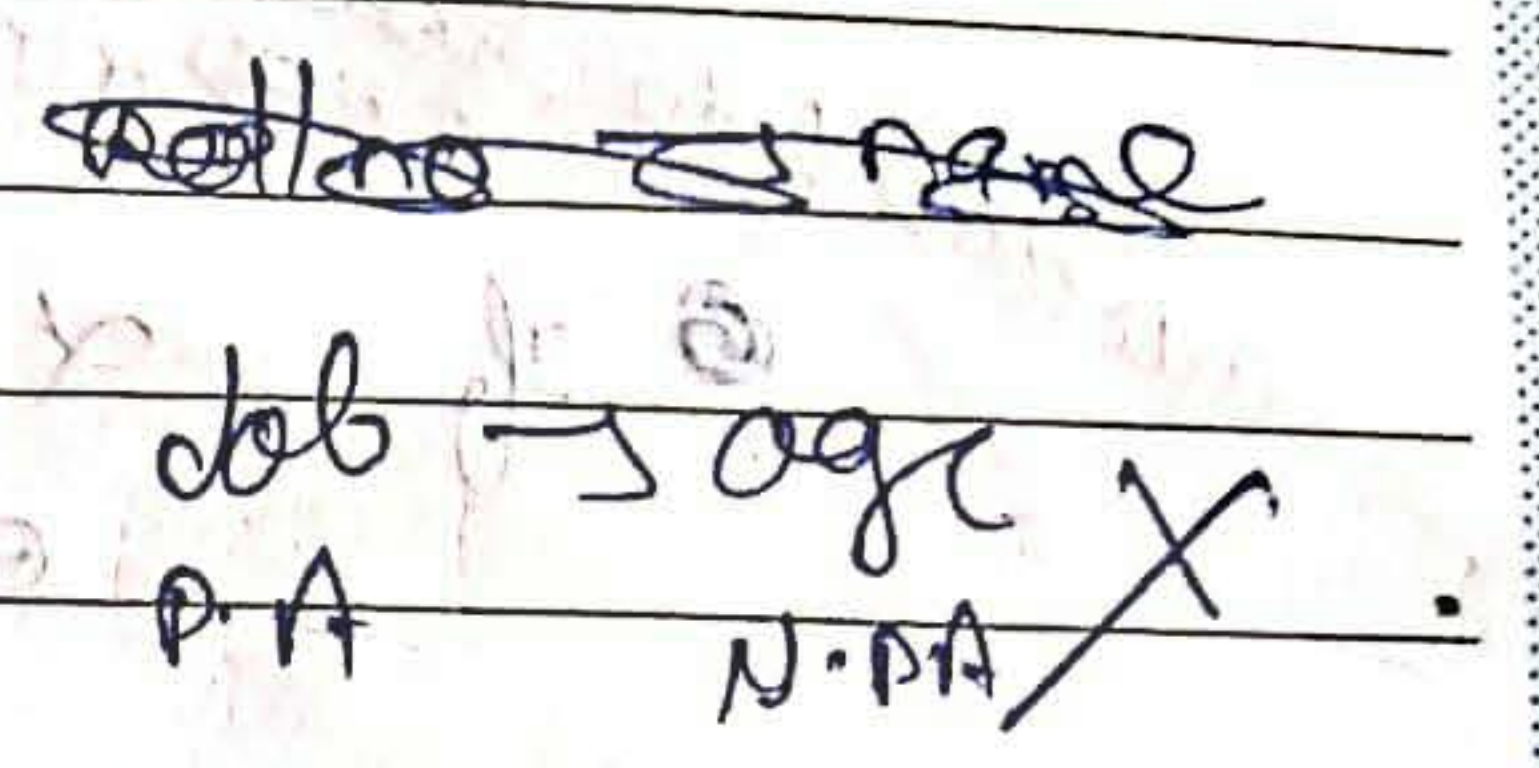 Rollno → name
dob → age
P.A N.PA X